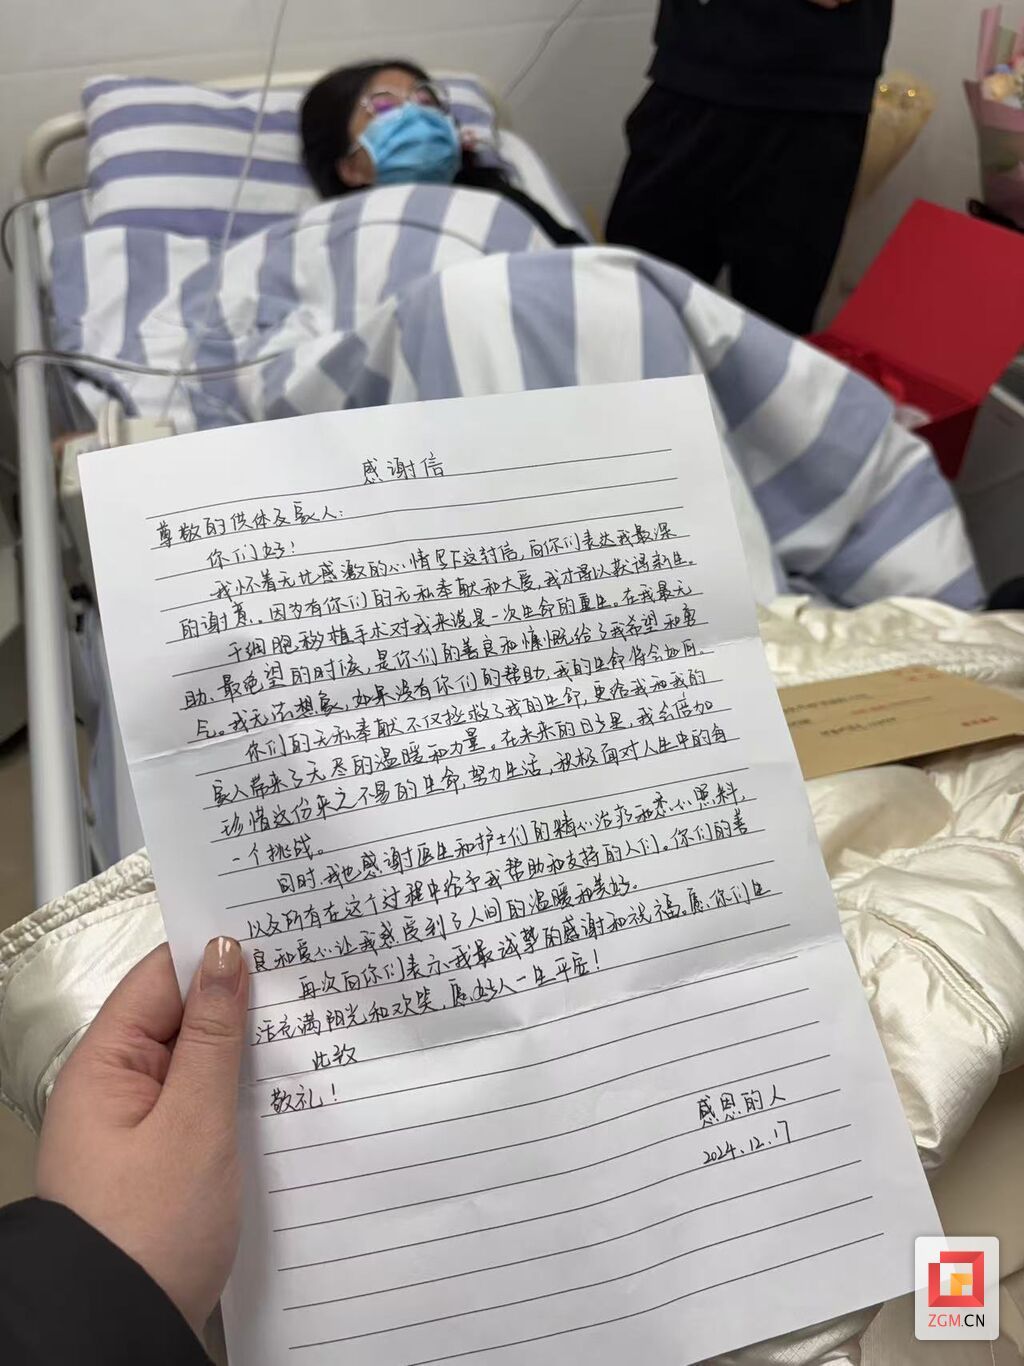 感谢信
尊敬的供体及家人:
你们好!
我怀着无比感激的心情写下这封信,向你们表达我最深
的谢意。因为有你们的无私奉献和大爱,我才得以获得新生。
干细胞移植手术对我来说是一次生命的重生。在我最无
助、最绝望的时候,是你们的善良和慷慨给了我希望和勇
气。我无法想象,如果没有你们的帮助,我的生命将会如何。
你们的无私奉献不仅拯救了我的生命,更给我和我的
家人带来了无尽的温暖和力量。在未来的日子里,我会倍加
珍惜这份来之不易的生命,努力生活,积极面对人生中的每
一个挑战。
同时,我也感谢医生和护士们的精心治疗和悉心照料,
以及所有在这个过程中给予我帮助和支持的人们。你们的善
良和爱心让我感受到了人间的温暖和美好。
再次向你们表示我最诚挚的感谢和祝福。愿你们生
活充满阳光和欢笑,愿好人一生平安!
此致
敬礼!
感恩的人
2024.12.17
ZGM.CN